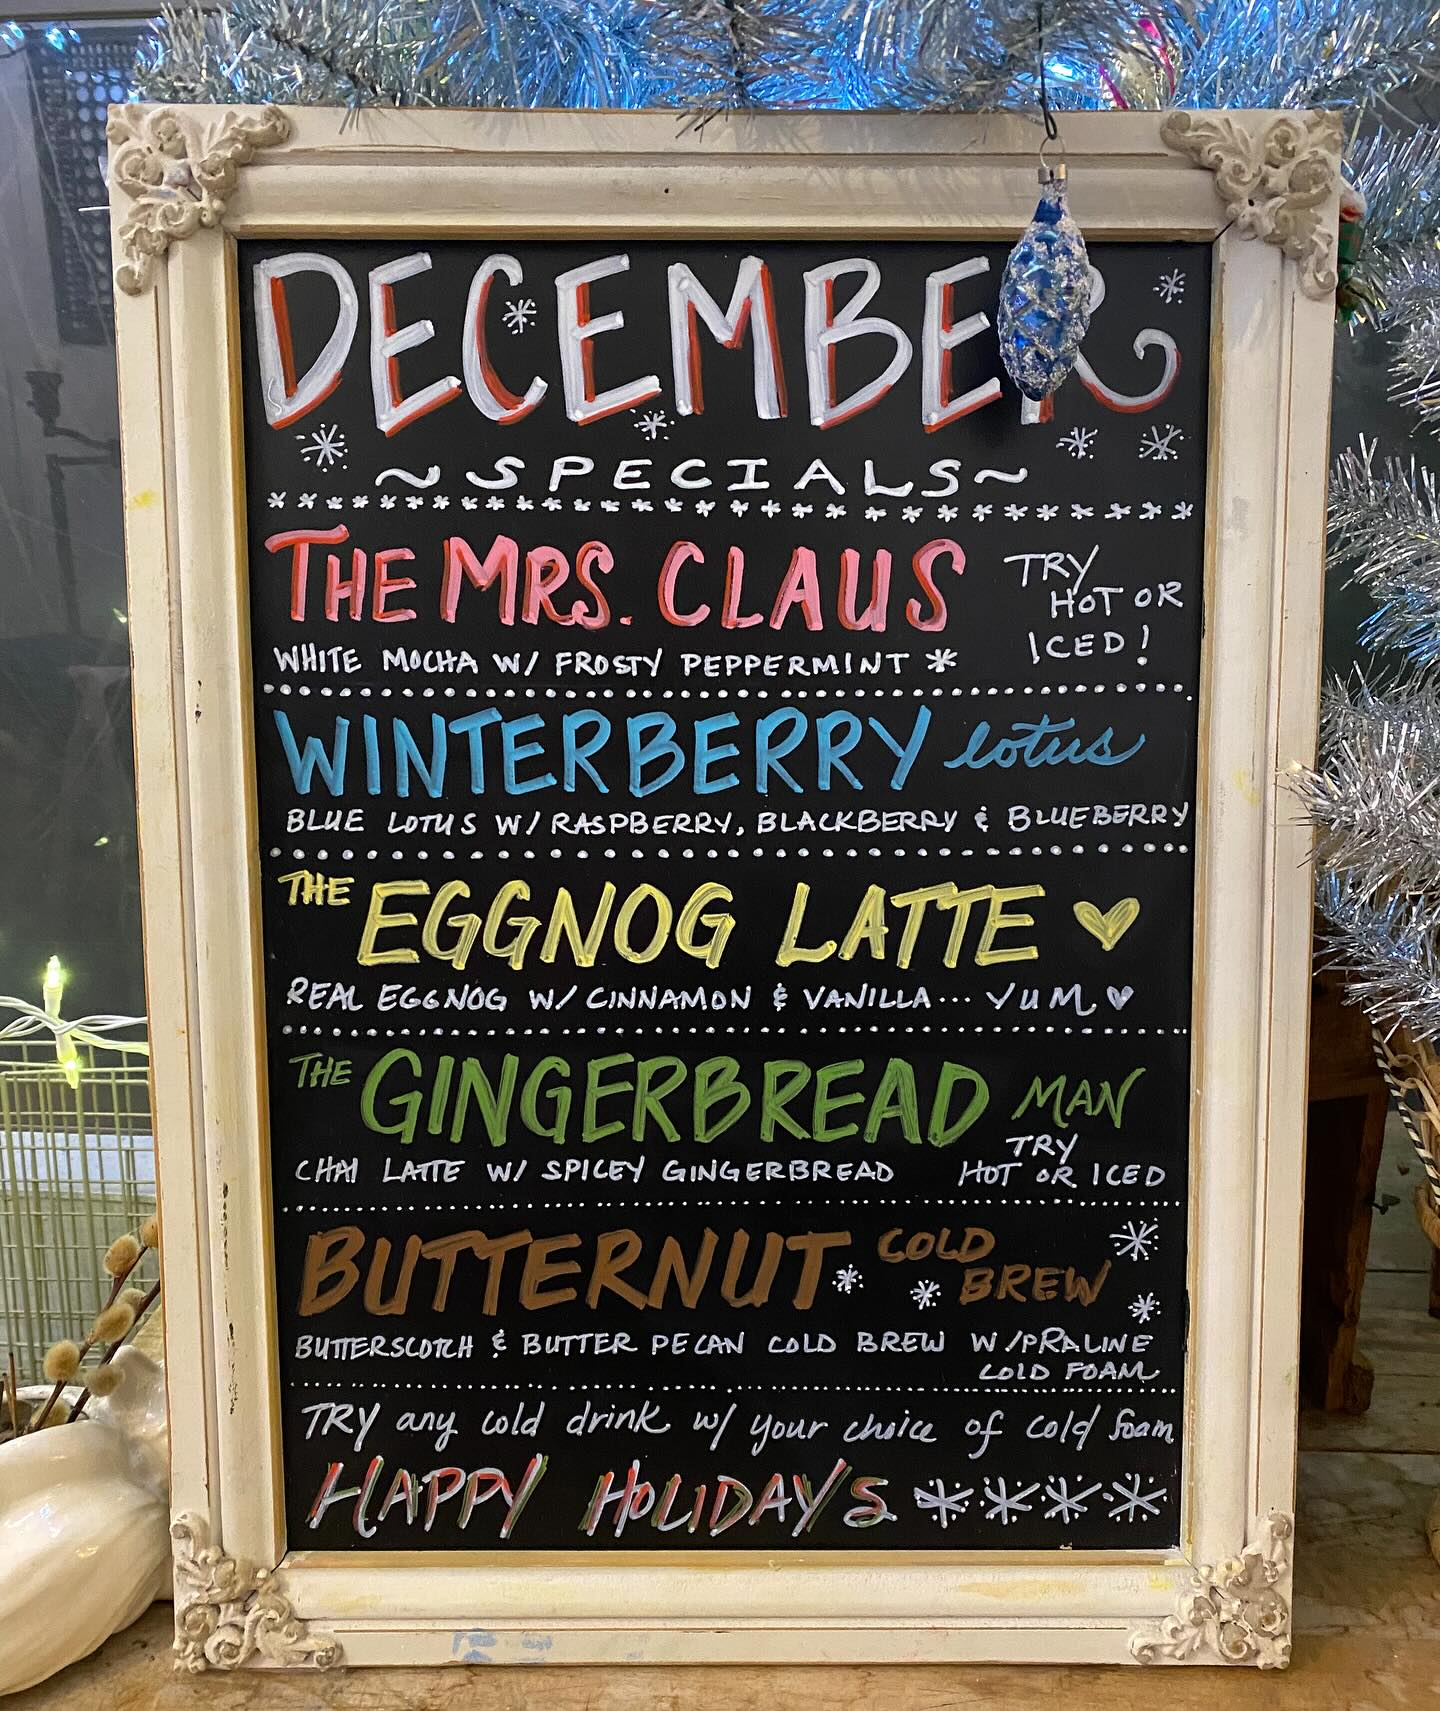 DECEMBER
~SPECIALS~
THE MRS. CLAUS
TRY
HOT OR
ICED!
WHITE MOCHA W/ FROSTY PEPPERMINT *
WINTERBERRY lotus
BLUE LOTUS W/ RASPBERRY, BLACKBERRY & BLUEBERRY
THE EGGNOG LATTE ♥
REAL EGGNOG W/ CINNAMON & VANILLA... YUM ♥
THE GINGERBREAD MAN
CHAI LATTE W/ SPICEY GINGERBREAD
TRY
HOT OR ICED
BUTTERNUT COLD
BREW
BUTTERSCOTCH & BUTTER PECAN COLD BREW W/ PRALINE
COLD FOAM
TRY any cold drink w/ your choice of cold foam
HAPPY HOLIDAYS